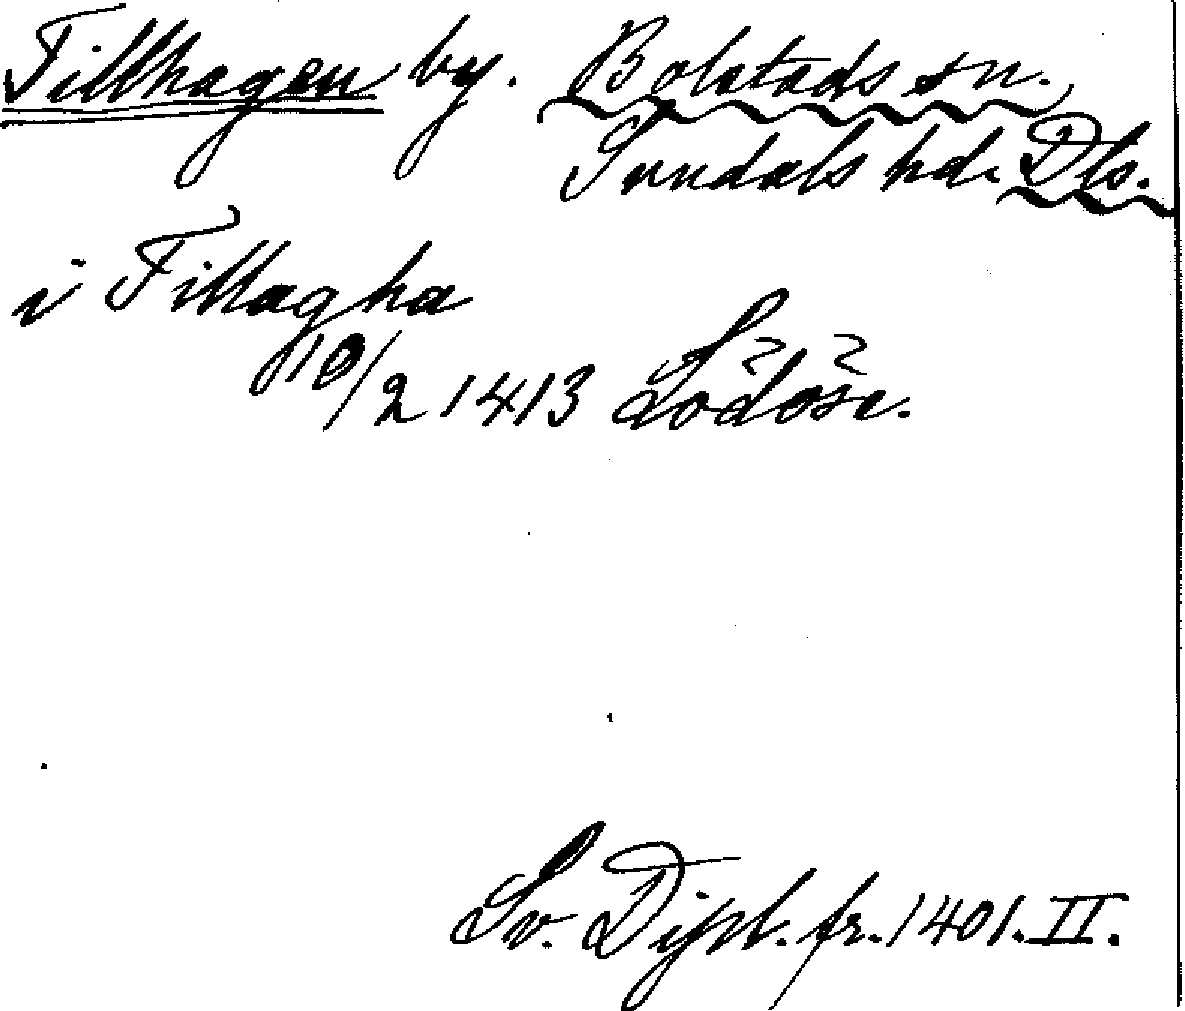 Tillhagen by. Bolstads sn.
Sundals hd. Dls.
i Tillagha
10/2 1413 Lödöse.
Sv. Dipl. fr. 1401. II.